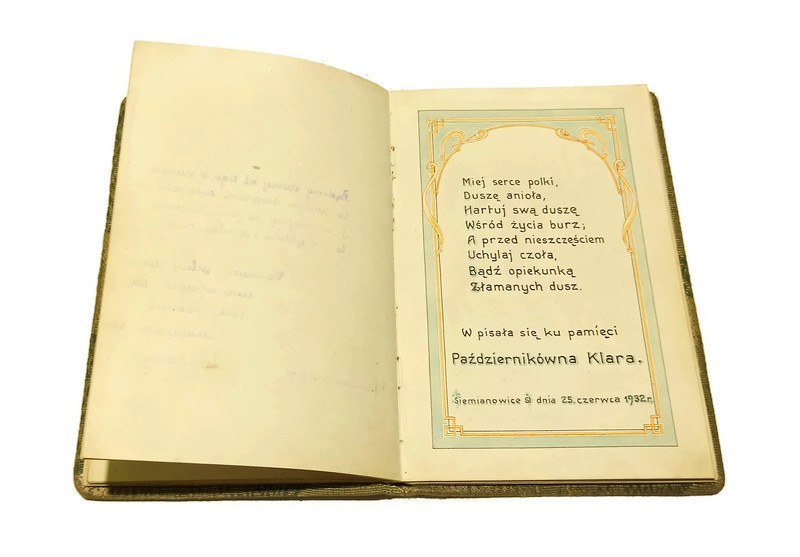 Miej serce polki,
Duszę anioła,
Hartuj swą duszę
Wśród życia burz;
A przed nieszczęściem
Uchylaj czoła,
Bądź opiekunką
Złamanych dusz.
W pisała się ku pamięci
Październikówna Klara.
Siemianowice Ś dnia 25. czerwca 1932 r.